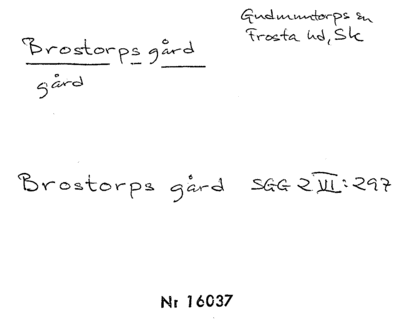 Gudmuntorps sn
Frosta hd, Sk
Brostorps gård
gård
Brostorps gård SGG 2 VI:297
Nr 16037